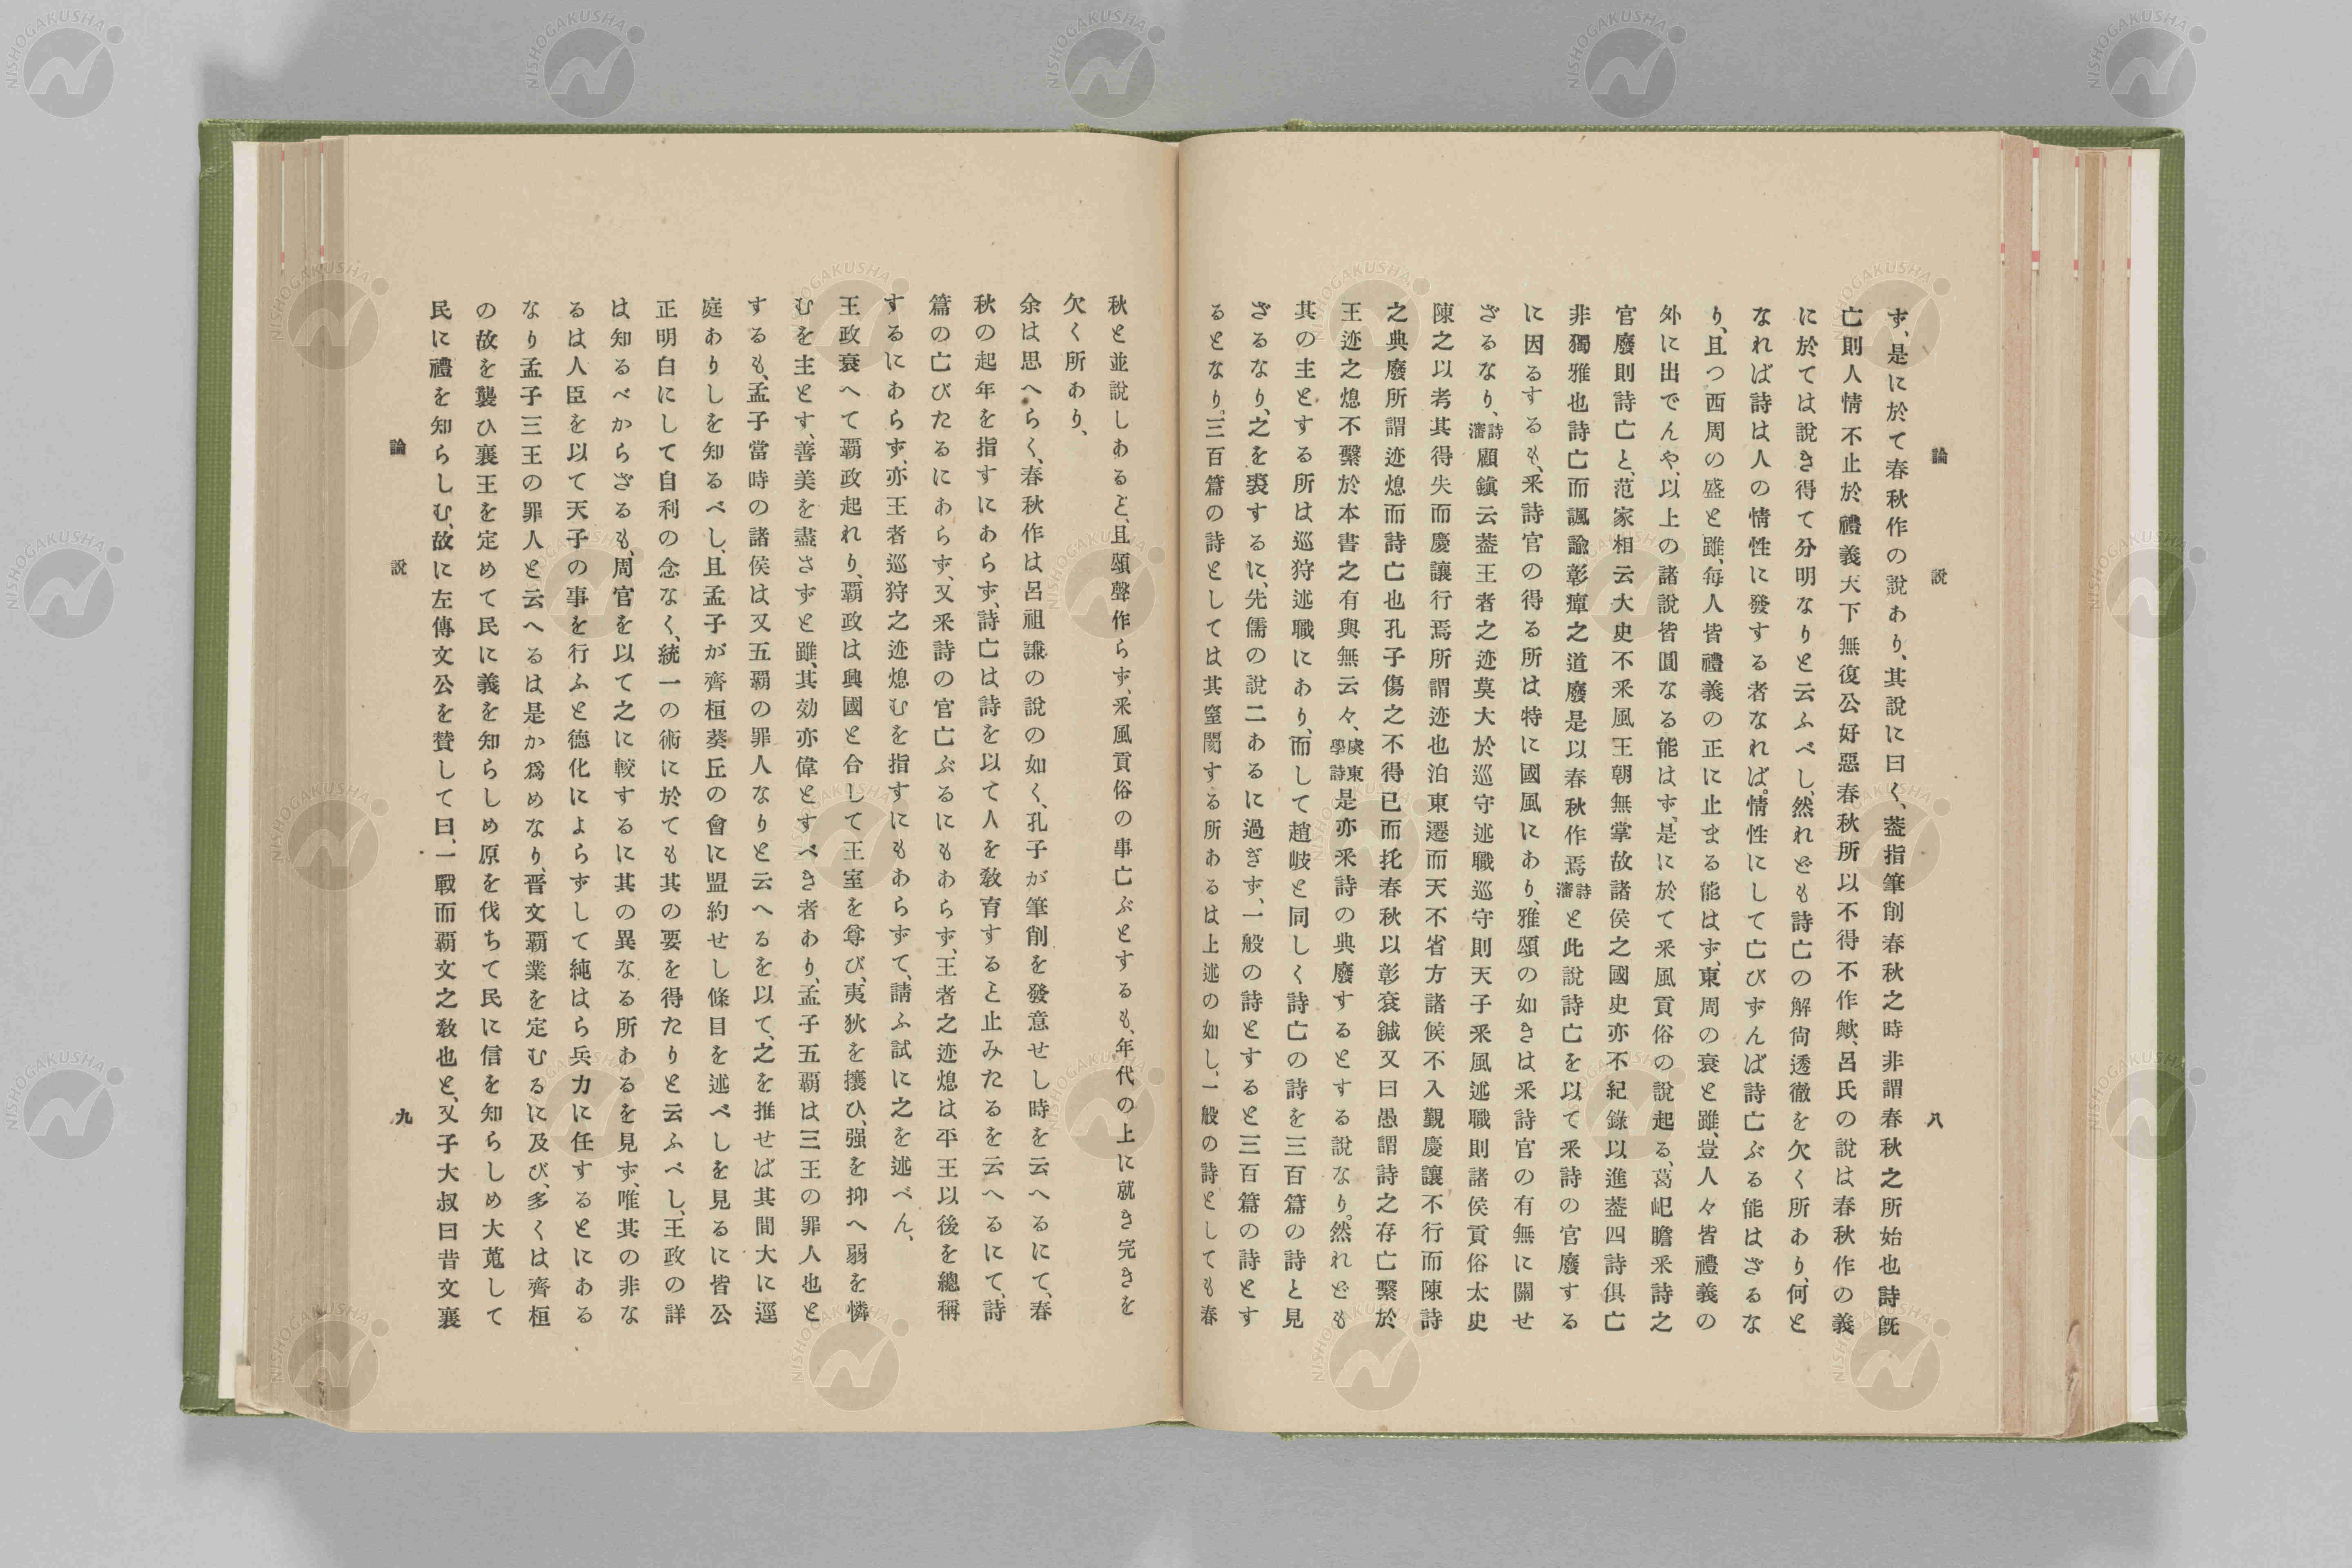 論說
八
ず、是に於て春秋作の說あり、其說に曰く、葢指筆削春秋之時非謂春秋之所始也詩旣
亡則人情不止於禮義天下無復公好惡春秋所以不得不作歟、呂氏の說は春秋作の義
に於ては說き得て分明なりと云ふべし、然れども詩亡の解尙透徹を欠く所あり、何と
なれば詩は人の情性に發する者なれば。情性にして亡びずんば詩亡ぶる能はざるな
り、且つ西周の盛と雖、每人皆禮義の正に止まる能はず、東周の衰と雖、豈人々皆禮義の
外に出でんや、以上の諸說皆圓なる能はず、是に於て釆風貢俗の說起る、葛屺瞻釆詩之
官廢則詩亡と、范家相云大史不釆風王朝無掌故諸侯之國史亦不紀錄以進葢四詩俱亡
非獨雅也詩亡而諷諭彰癉之道廢是以春秋作焉詩瀋と此說詩亡を以て釆詩の官廢する
に因るするも、釆詩官の得る所は、特に國風にあり、雅頌の如きは釆詩官の有無に關せ
ざるなり、詩瀋顧鎭云葢王者之迹莫大於巡守述職巡守則天子釆風述職則諸侯貢俗太史
陳之以考其得失而慶讓行焉所謂迹也洎東遷而天不省方諸候不入覲慶讓不行而陳詩
之典廢所謂迹熄而詩亡也孔子傷之不得已而托春秋以彰袞鉞又曰愚謂詩之存亡繫於
王迹之熄不繫於本書之有與無云々、虞東學詩是亦釆詩の典廢するとする說なり。然れども
其の主とする所は巡狩述職にあり、而して趙岐と同しく詩亡の詩を三百篇の詩と見
ざるなり、之を裘するに、先儒の說二あるに過ぎず、一般の詩とすると三百篇の詩とす
るとなり。三百篇の詩としては其窒閡する所あるは上述の如し、一般の詩としても春
秋と並說しあると、且頌聲作らず、釆風貢俗の事亡ぶとするも、年代の上に就き完きを
欠く所あり、
余は思へらく、春秋作は呂祖謙の說の如く、孔子が筆削を發意せし時を云へるにて、春
秋の起年を指すにあらず、詩亡は詩を以て人を敎育すると止みたるを云へるにて、詩
篇の亡びたるにあらず、又釆詩の官亡ぶるにもあらず、王者之迹熄は平王以後を總稱
するにあらず、亦王者巡狩之迹熄むを指すにもあらずて、請ふ試に之を述べん、
王政衰へて覇政起れり、覇政は興國と合して王室を尊び、夷狄を攘ひ、强を抑へ弱を憐
むを主とす、善美を盡さずと雖、其効亦偉とすべき者あり、孟子五覇は三王の罪人也と
するも、孟子當時の諸侯は又五覇の罪人なりと云へるを以て、之を推せば其間大に逕
庭ありしを知るべし、且孟子が齊桓葵丘の會に盟約せし條目を述べしを見るに皆公
正明白にして自利の念なく、統一の術に於ても其の要を得たりと云ふべし、王政の詳
は知るべからざるも、周官を以て之に較するに其の異なる所あるを見ず、唯其の非な
るは人臣を以て天子の事を行ふと德化によらずして純はら兵力に任するとにある
なり孟子三王の罪人と云へるは是か爲めなり、晋文覇業を定むるに及び、多くは齊桓
の故を襲ひ襄王を定めて民に義を知らしめ原を伐ちて民に信を知らしめ大蒐して
民に禮を知らしむ、故に左傳文公を賛して曰、一戰而覇文之敎也と、又子大叔曰昔文襄
論說
九